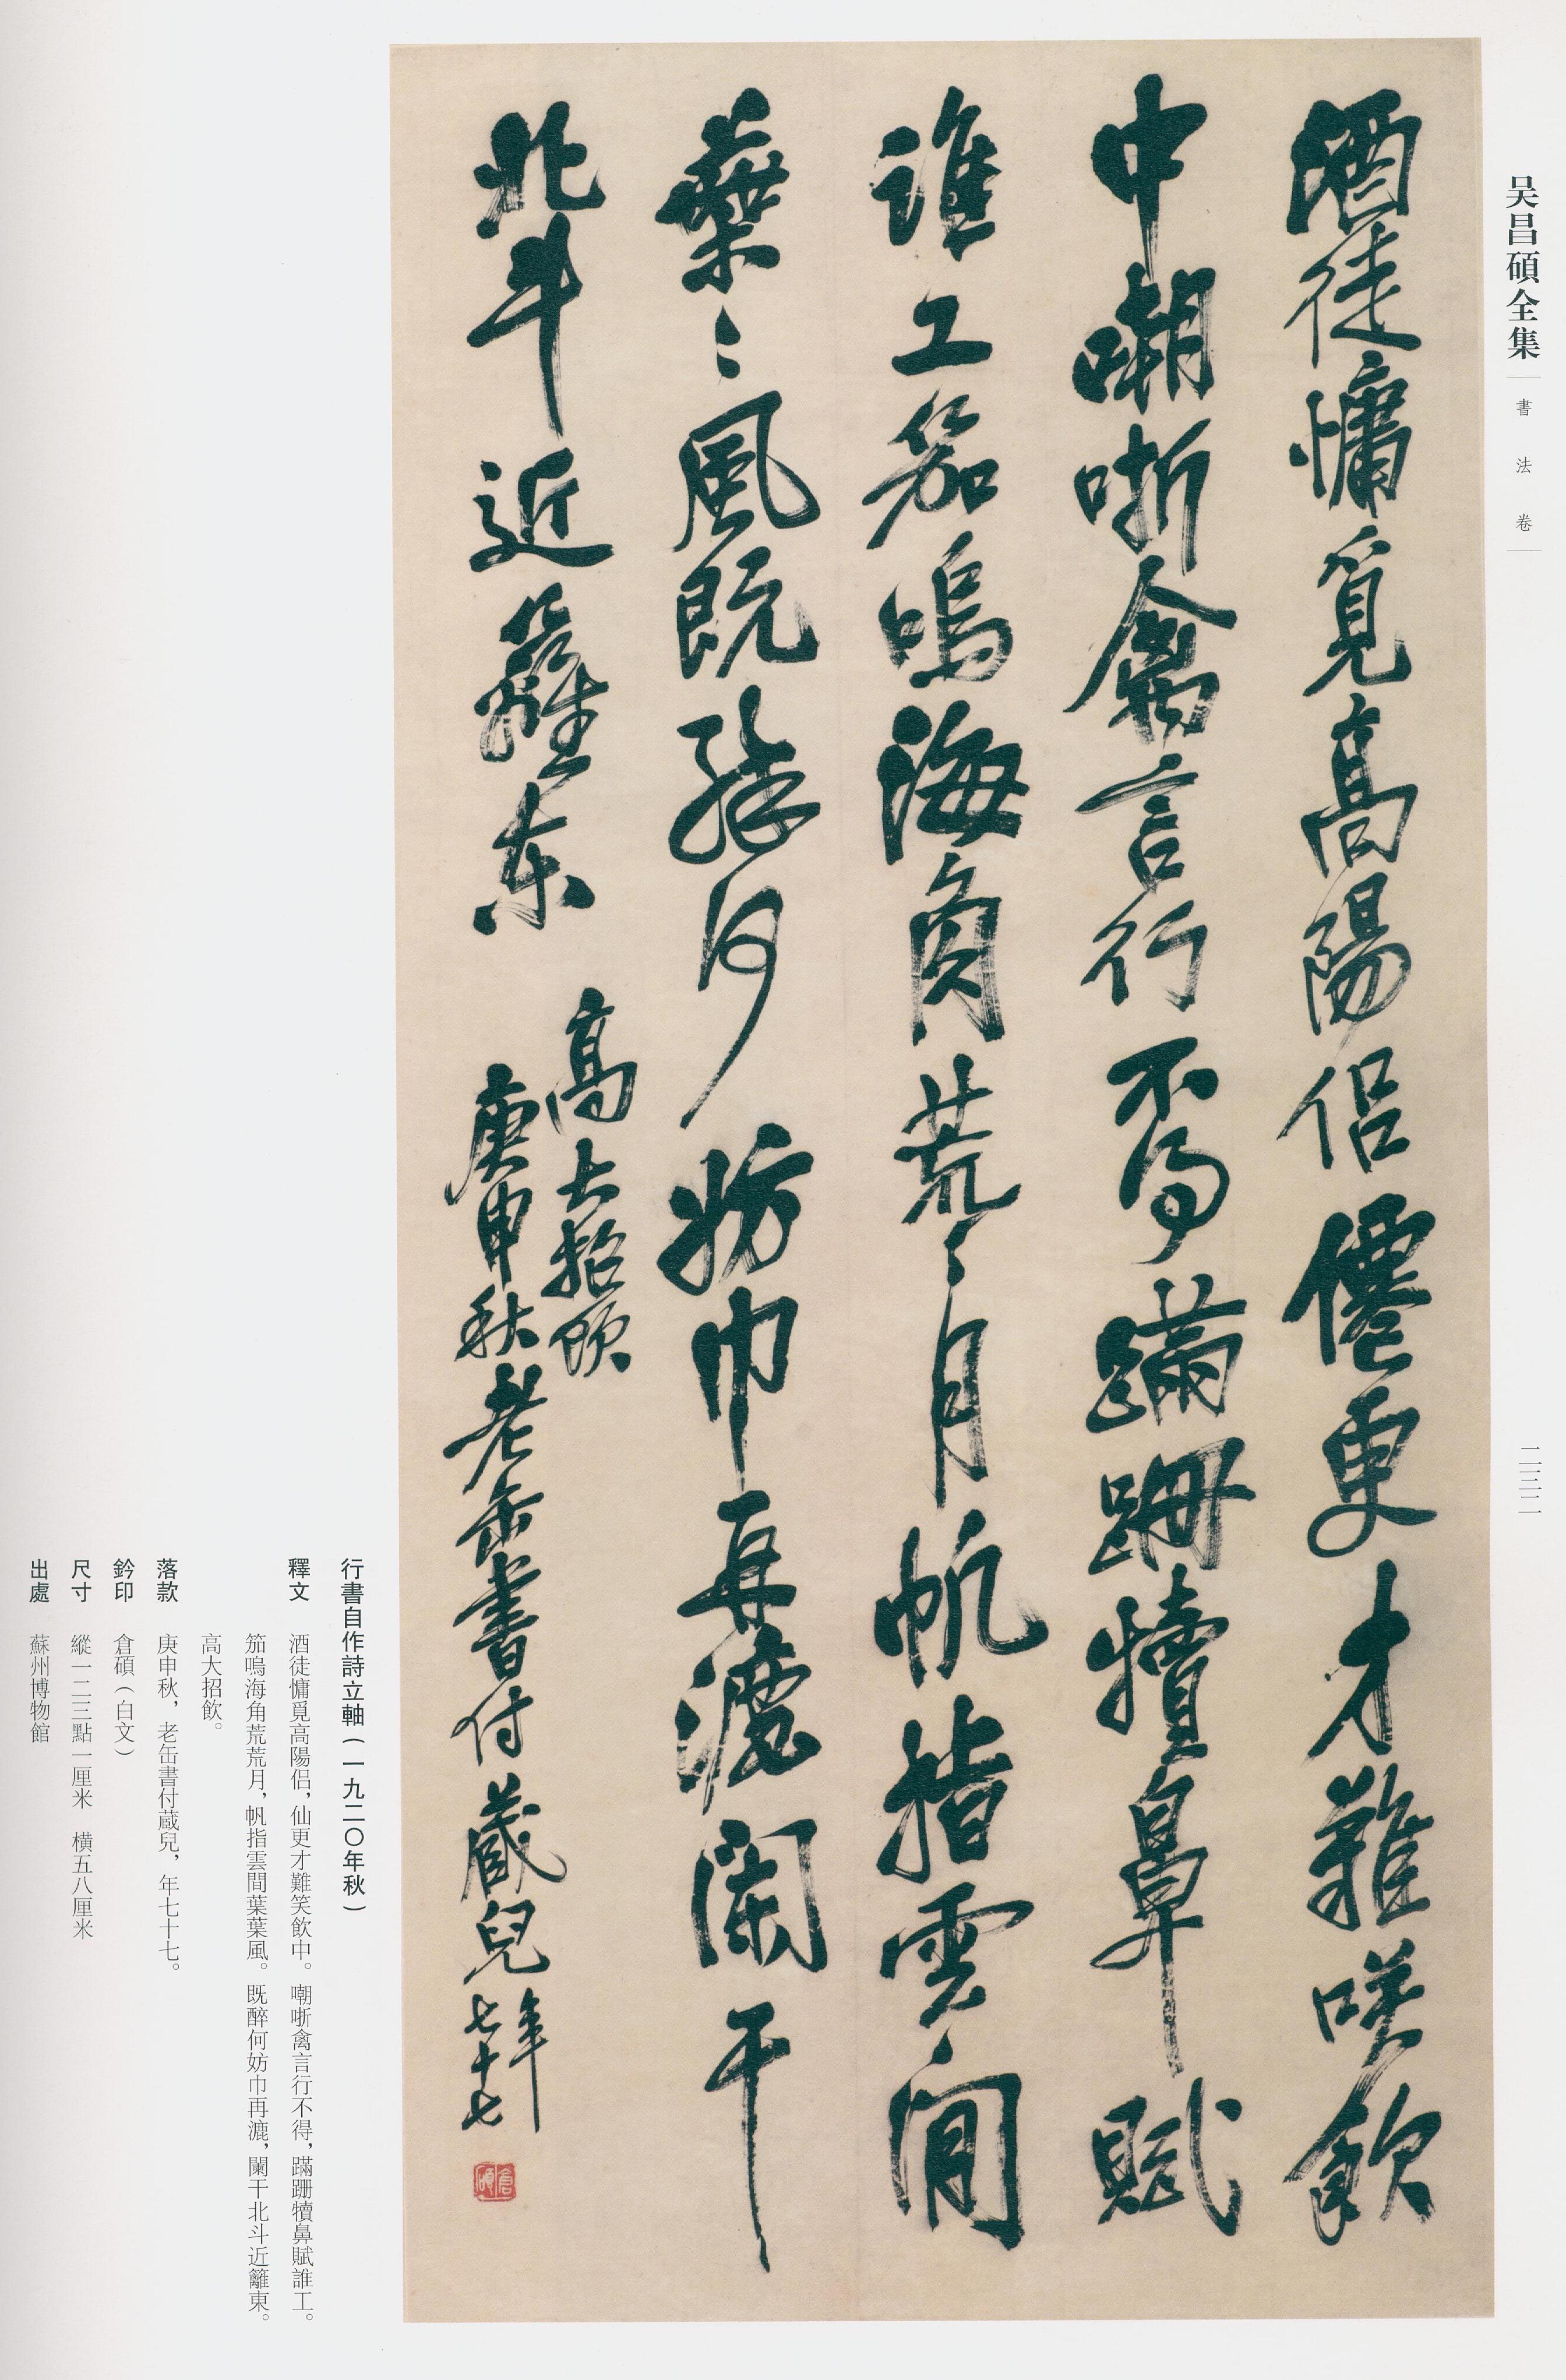 吴昌碩全集
書法卷
二三二
酒徒慵覓高陽侶僊更才難咲飲
中嘲哳禽言行不得蹣跚犢鼻賦
誰工笳鳴海角荒〻月帆指雲間
葉〻風既醉何妨巾再漉闌干
北斗近籬東
高大招飲
庚申秋老缶書付蔵兒年
七十七
倉碩
行書自作詩立軸(一九二〇年秋)
釋文 酒徒慵覓高陽侶,仙更才難笑飲中。嘲哳禽言行不得,蹣跚犢鼻賦誰工。
笳鳴海角荒荒月,帆指雲間葉葉風。既醉何妨巾再漉,闌干北斗近籬東。
高大招飲。
落款 庚申秋,老缶書付蔵兒,年七十七。
鈐印 倉碩(白文)
尺寸 縱一二三點一厘米 橫五八厘米
出處 蘇州博物館